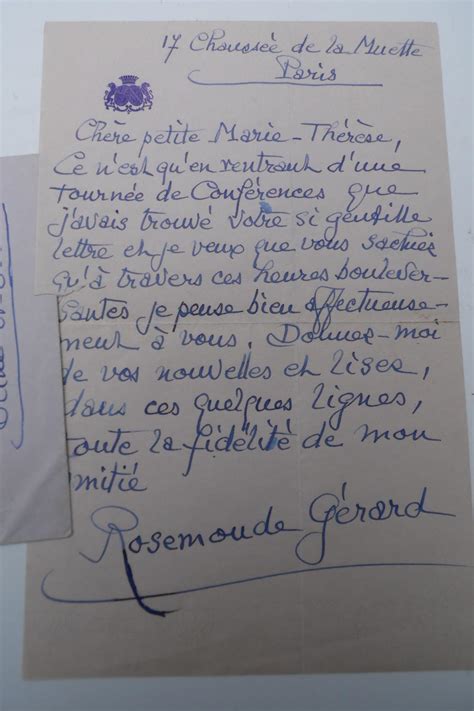 17 Chaussée de la Muette
Paris
Chère petite Marie-Thérèse,
Ce n'est qu'en rentrant d'une
tournée de Conférences que
j'avais trouvé votre si gentille
lettre et je veux que vous sachiez
qu'à travers ces heures boulever-
santes je pense bien affectueuse-
ment à vous. Donnez-moi
de vos nouvelles et lisez,
dans ces quelques lignes,
toute la fidélité de mon
mitié
Rosemonde Gérard